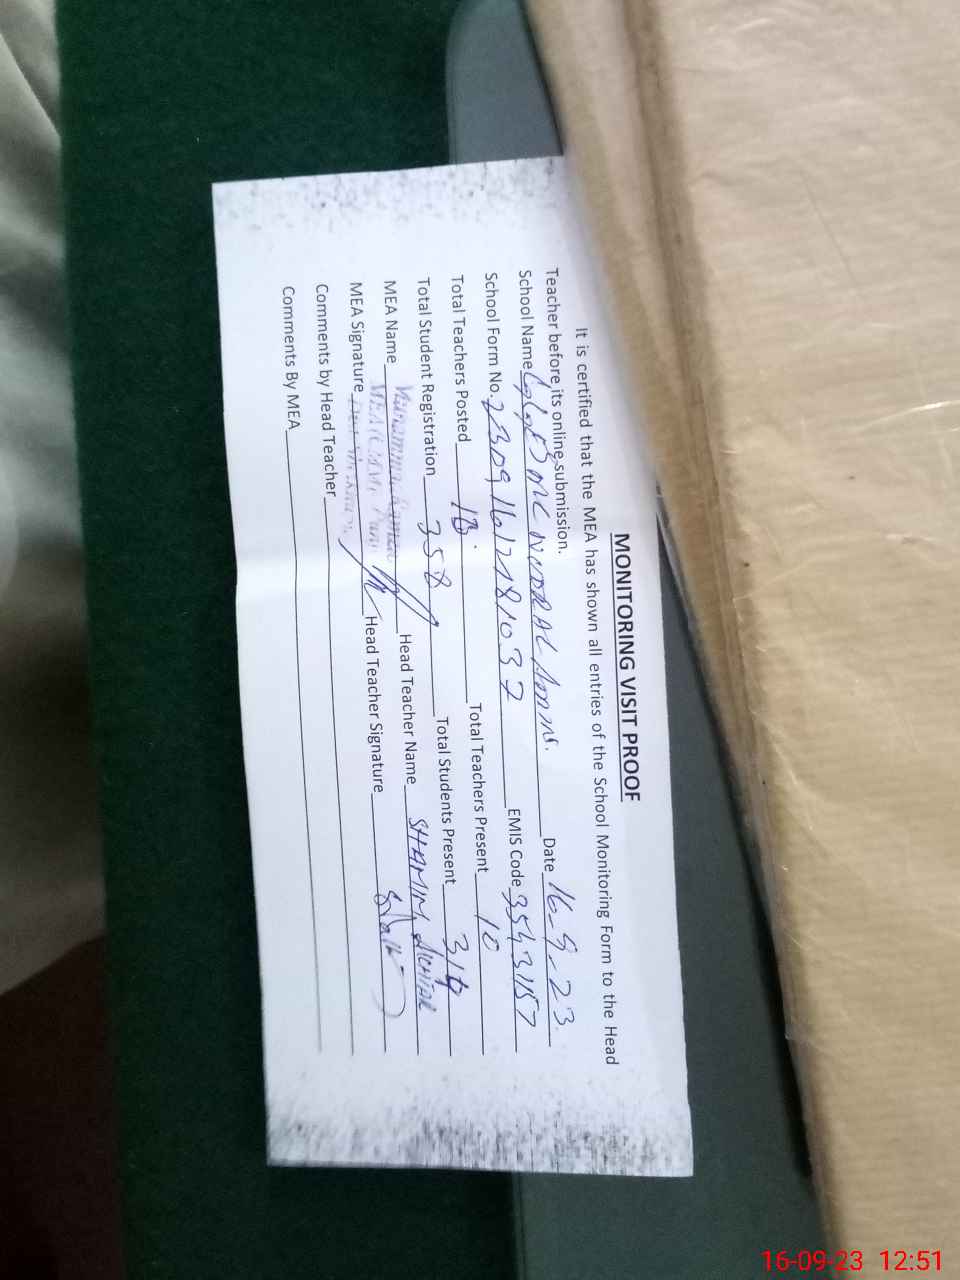 MONITORING VISIT PROOF
It is certified that the MEA has shown all entries of the School Monitoring Form to the Head
Teacher before its online submission.
School Name Date 16-9-23.
School Form No. 23091612181037 EMIS Code 35431157
Total Teachers Posted Total Teachers Present 10
Total Student Registration 358 Total Students Present 314
MEA Name Head Teacher Name SHAMIM AKHTAR
MEA Signature Head Teacher Signature
Comments by Head Teacher
Comments By MEA
16-09-23 12:51